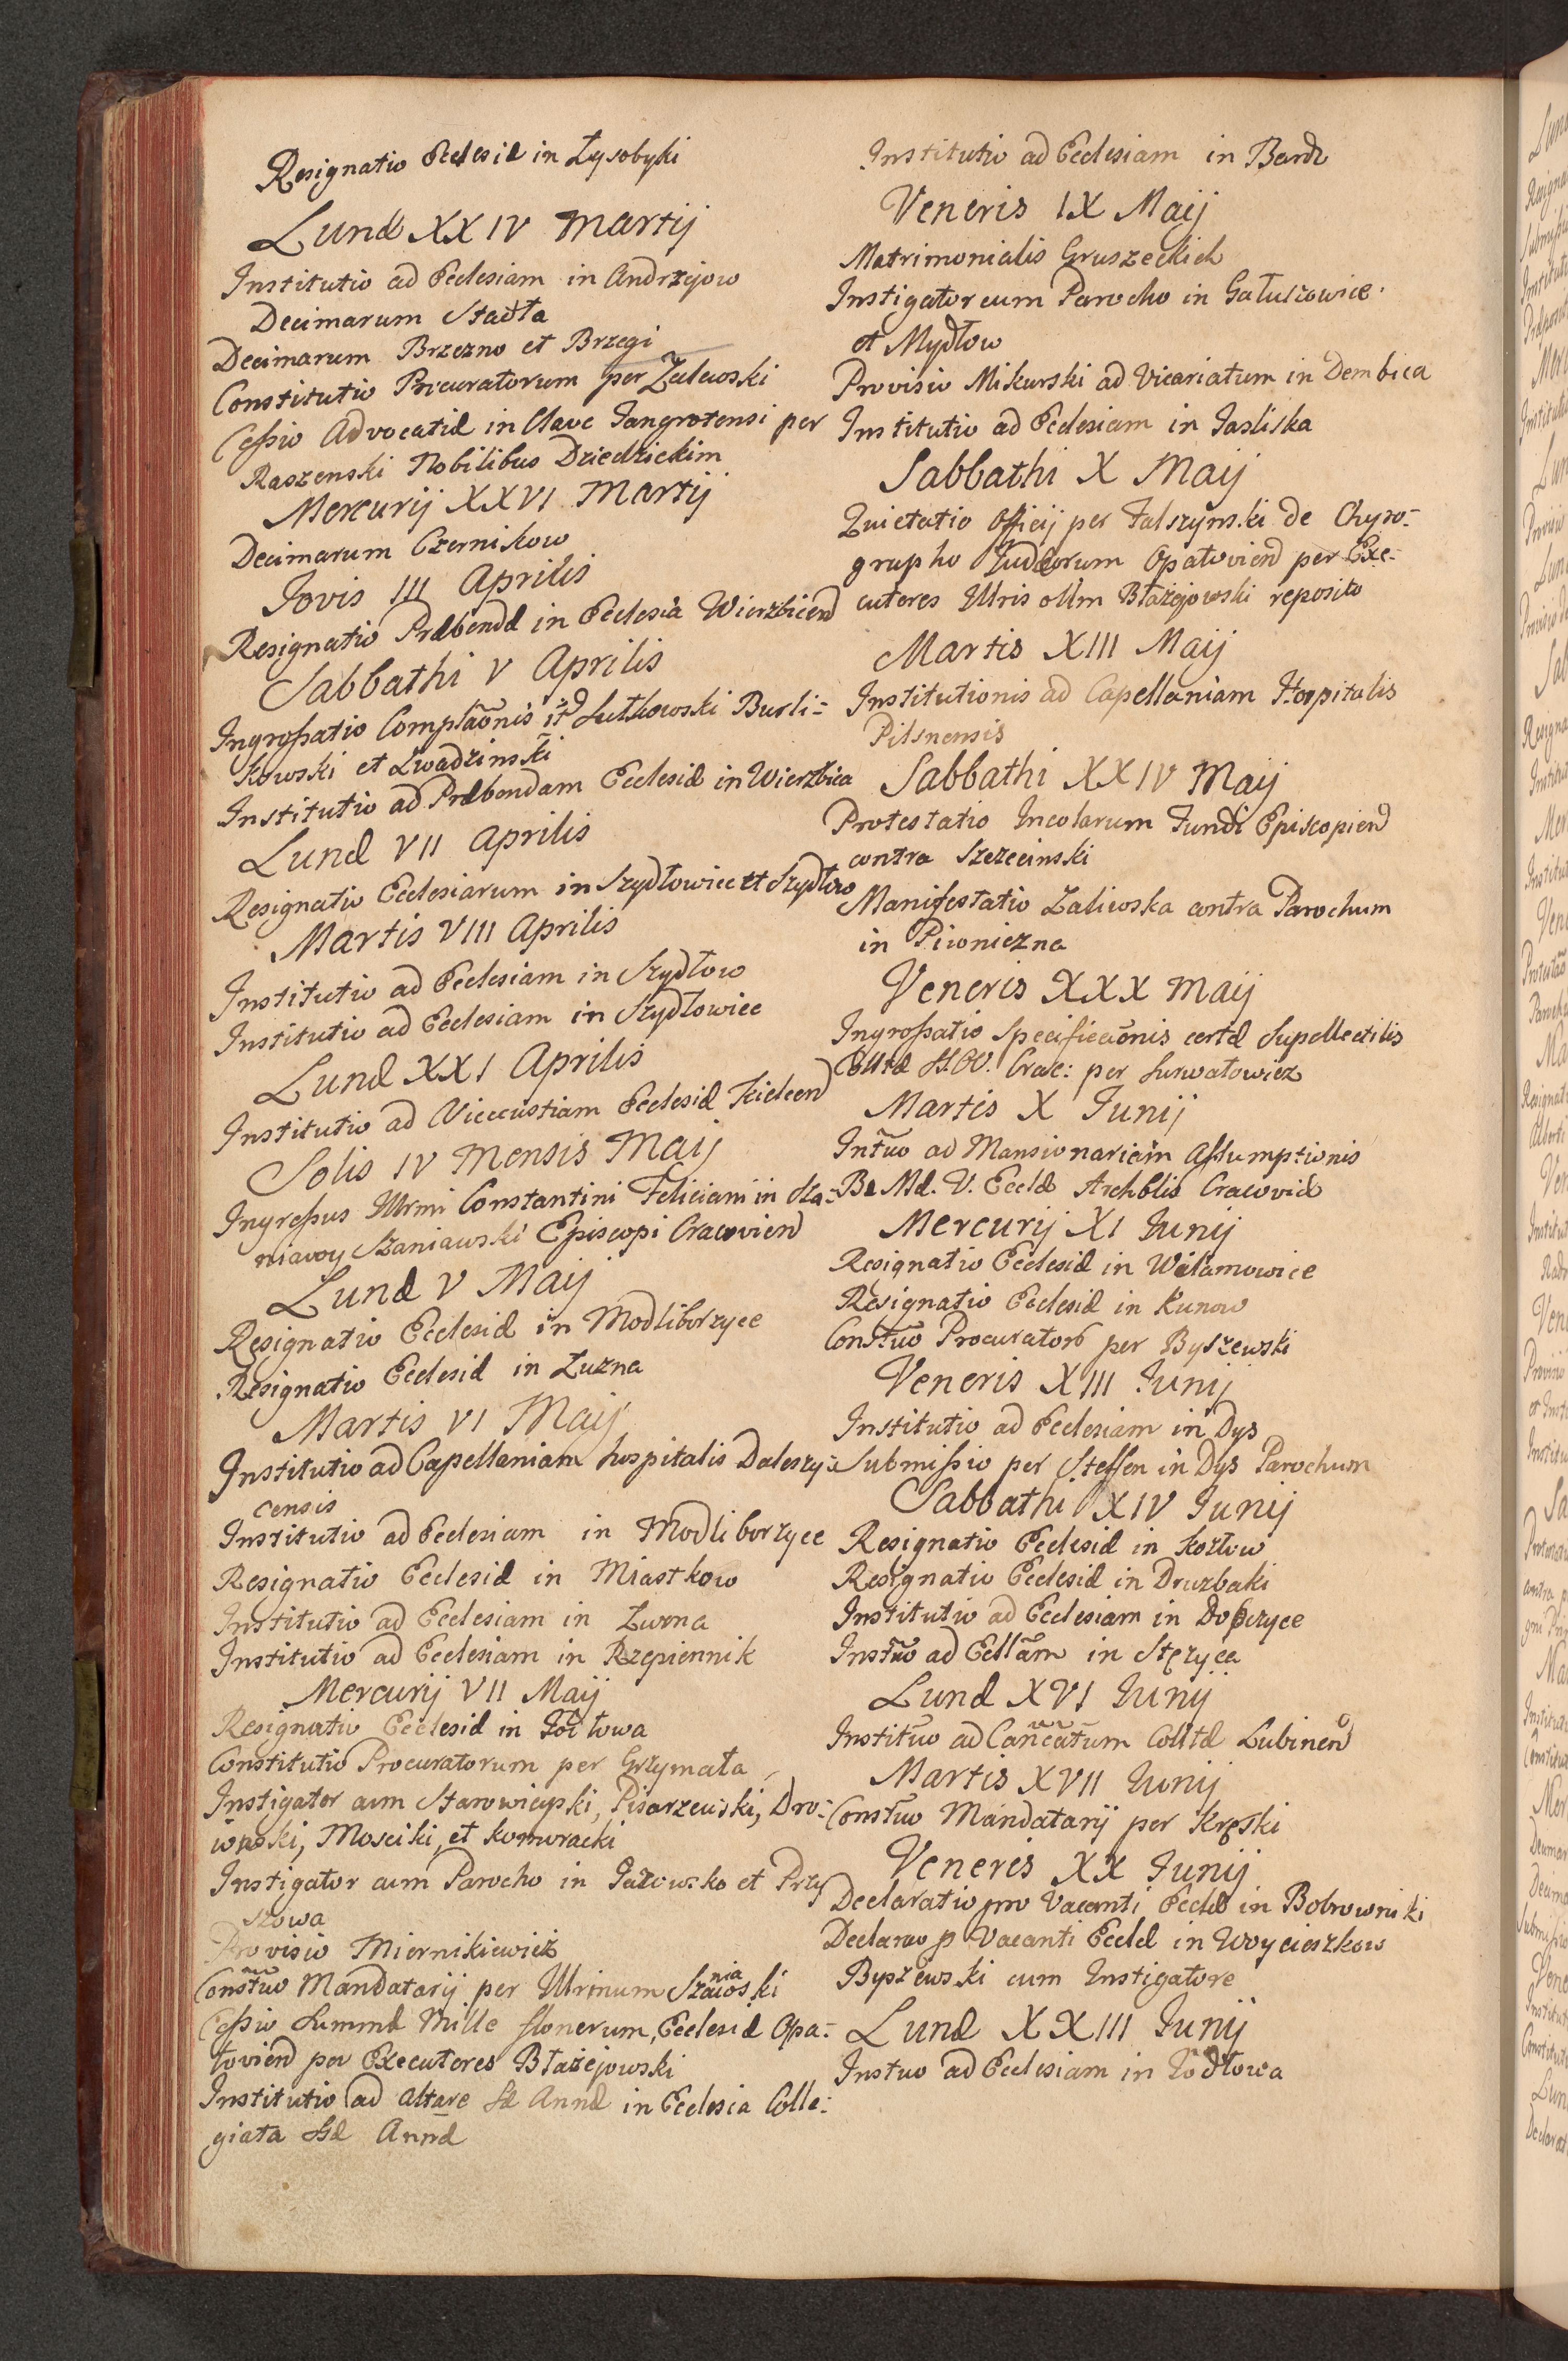 Resignatio Ecclesiæ in Łysobyki
Lunæ XXIV Martij
Institutio ad Ecclesiam in Andrzejow
Decimarum Stadła
Decimarum Brzezno et Brzegi
Constitutio Procuratorum per Zalewski
Cessio Advocatiæ in Clave Jangrotensi per
Raszenski Nobilibus Dziedzickim
Mercurij XXVI Martij
Decimarum Czernikow
Jovis III Aprilis
Resignatio Præbendæ in Ecclesia Wierzbicen
Sabbathi V Aprilis
Ingrossatio Complãonis Lutkowski Burli=
kowski et Zwadzinski
Institutio ad Præbendam Ecclesiæ in Wierzbica
Lunæ VII Aprilis
Resignatio Ecclesiarum in Szydłowiec et Szydłow
Martis VIII Aprilis
Institutio ad Ecclesiam in Szydłow
Institutio ad Ecclesiam in Szydłowiec
Lunæ XXI Aprilis
Institutio ad Vicecustiam Ecclesiæ Kielcen
Solis IV Mensis Maij
Ingressus Illrmi Constantini Feliciani in Sza=
niawy Szaniawski Episcopi Cracovien
Lunæ V Maij
Resignatio Ecclesiæ in Modliborzyce
Resignatio Ecclesiæ in Łuzna
Martis VI Maij
Institutio ad Capellaniam hospitalis Daleszy=
censis
Institutio ad Ecclesiam in Modliborzyce
Resignatio Ecclesiæ in Miastkow
Institutio ad Ecclesiam in Łuzna
Institutio ad Ecclesiam in Rzepiennik
Mercurij VII Maij
Resignatio Ecclesiæ in
Constitutio Procuratorum per Grzymała
Instigator cum Starowieyski, Pisarzewski, Dro=
iowski, Mosciki, et Komoracki
Instigator cum Parocho in et Przy
szowa
Provisio Miernikiewicz
Constũo Mandatarij per Illrinum Szaniawski
Cessio Summæ Mille florenorum, Ecclesiæ Opa=
tovien per Executores Błażejowski
Institutio ad Altare Stæ Annæ in Ecclesia Colle=
giata Stæ Annæ
Institutio ad Ecclesiam in Bardo
Veneris IX Maij
Matrimonialis Gruszeckich
Instigator cum Parocho in Gałuszowice
et Mydłow
Provisio Mikurski ad Vicariatum in Dembica
Institutio ad Ecclesiam in Jasliska
Sabbathi X Maij
Quietatio Officij per Falszynski de Chyro=
grapho Judæorum Opatovien per Exe=
cutores Illris ollim Błażejowski reposito
Martis XIII Maij
Institutionis ad Capellaniam Hospitalis
Pilsnensis
Sabbathi XXIV Maij
Protestatio Incolarum Fundi Episcopien
contra Szczecinski
Manifestatio Zaliwska contra Parochum
in Piwniczna
Veneris XXX Maij
Ingrossatio Specificaõnis certæ Supellectilis
Colltæ Crac: per
Martis X Junij
Intũo ad Mansionariam Assumptionis
V. Eccld Archblis Cracoviæ
Mercurij XI Junij
Resignatio Ecclesiæ in Wilamowice
Resignatio Ecclesiæ in Kunow
Constũo Procurator per Byszewski
Veneris XIII Junij
Institutio ad Ecclesiam in Dys
Submissio per Steffen in Dys Parochum
Sabbathi XIV Junij
Resignatio Ecclesiæ in Kozłow
Resignatio Ecclesiæ in Druzbaki
Institutio ad Ecclesiam in Dobczyce
Instũo ad Ecllãm in Stęzyca
Lunæ XVI Junij
Institũo ad Cañcatum Colltæ Lubinen
Martis XVII Junij
Constũo Mandatarij per Kręski
Veneris XX Junij
Declaratio pro Vacanti Eccld in Bobrowniki
Declarao p Vacanti Eccld in Woycieszkow
Byszewski cum Instigatore
Lunæ XXIII Junij
Instuo ad Ecclesiam in Jodłowa